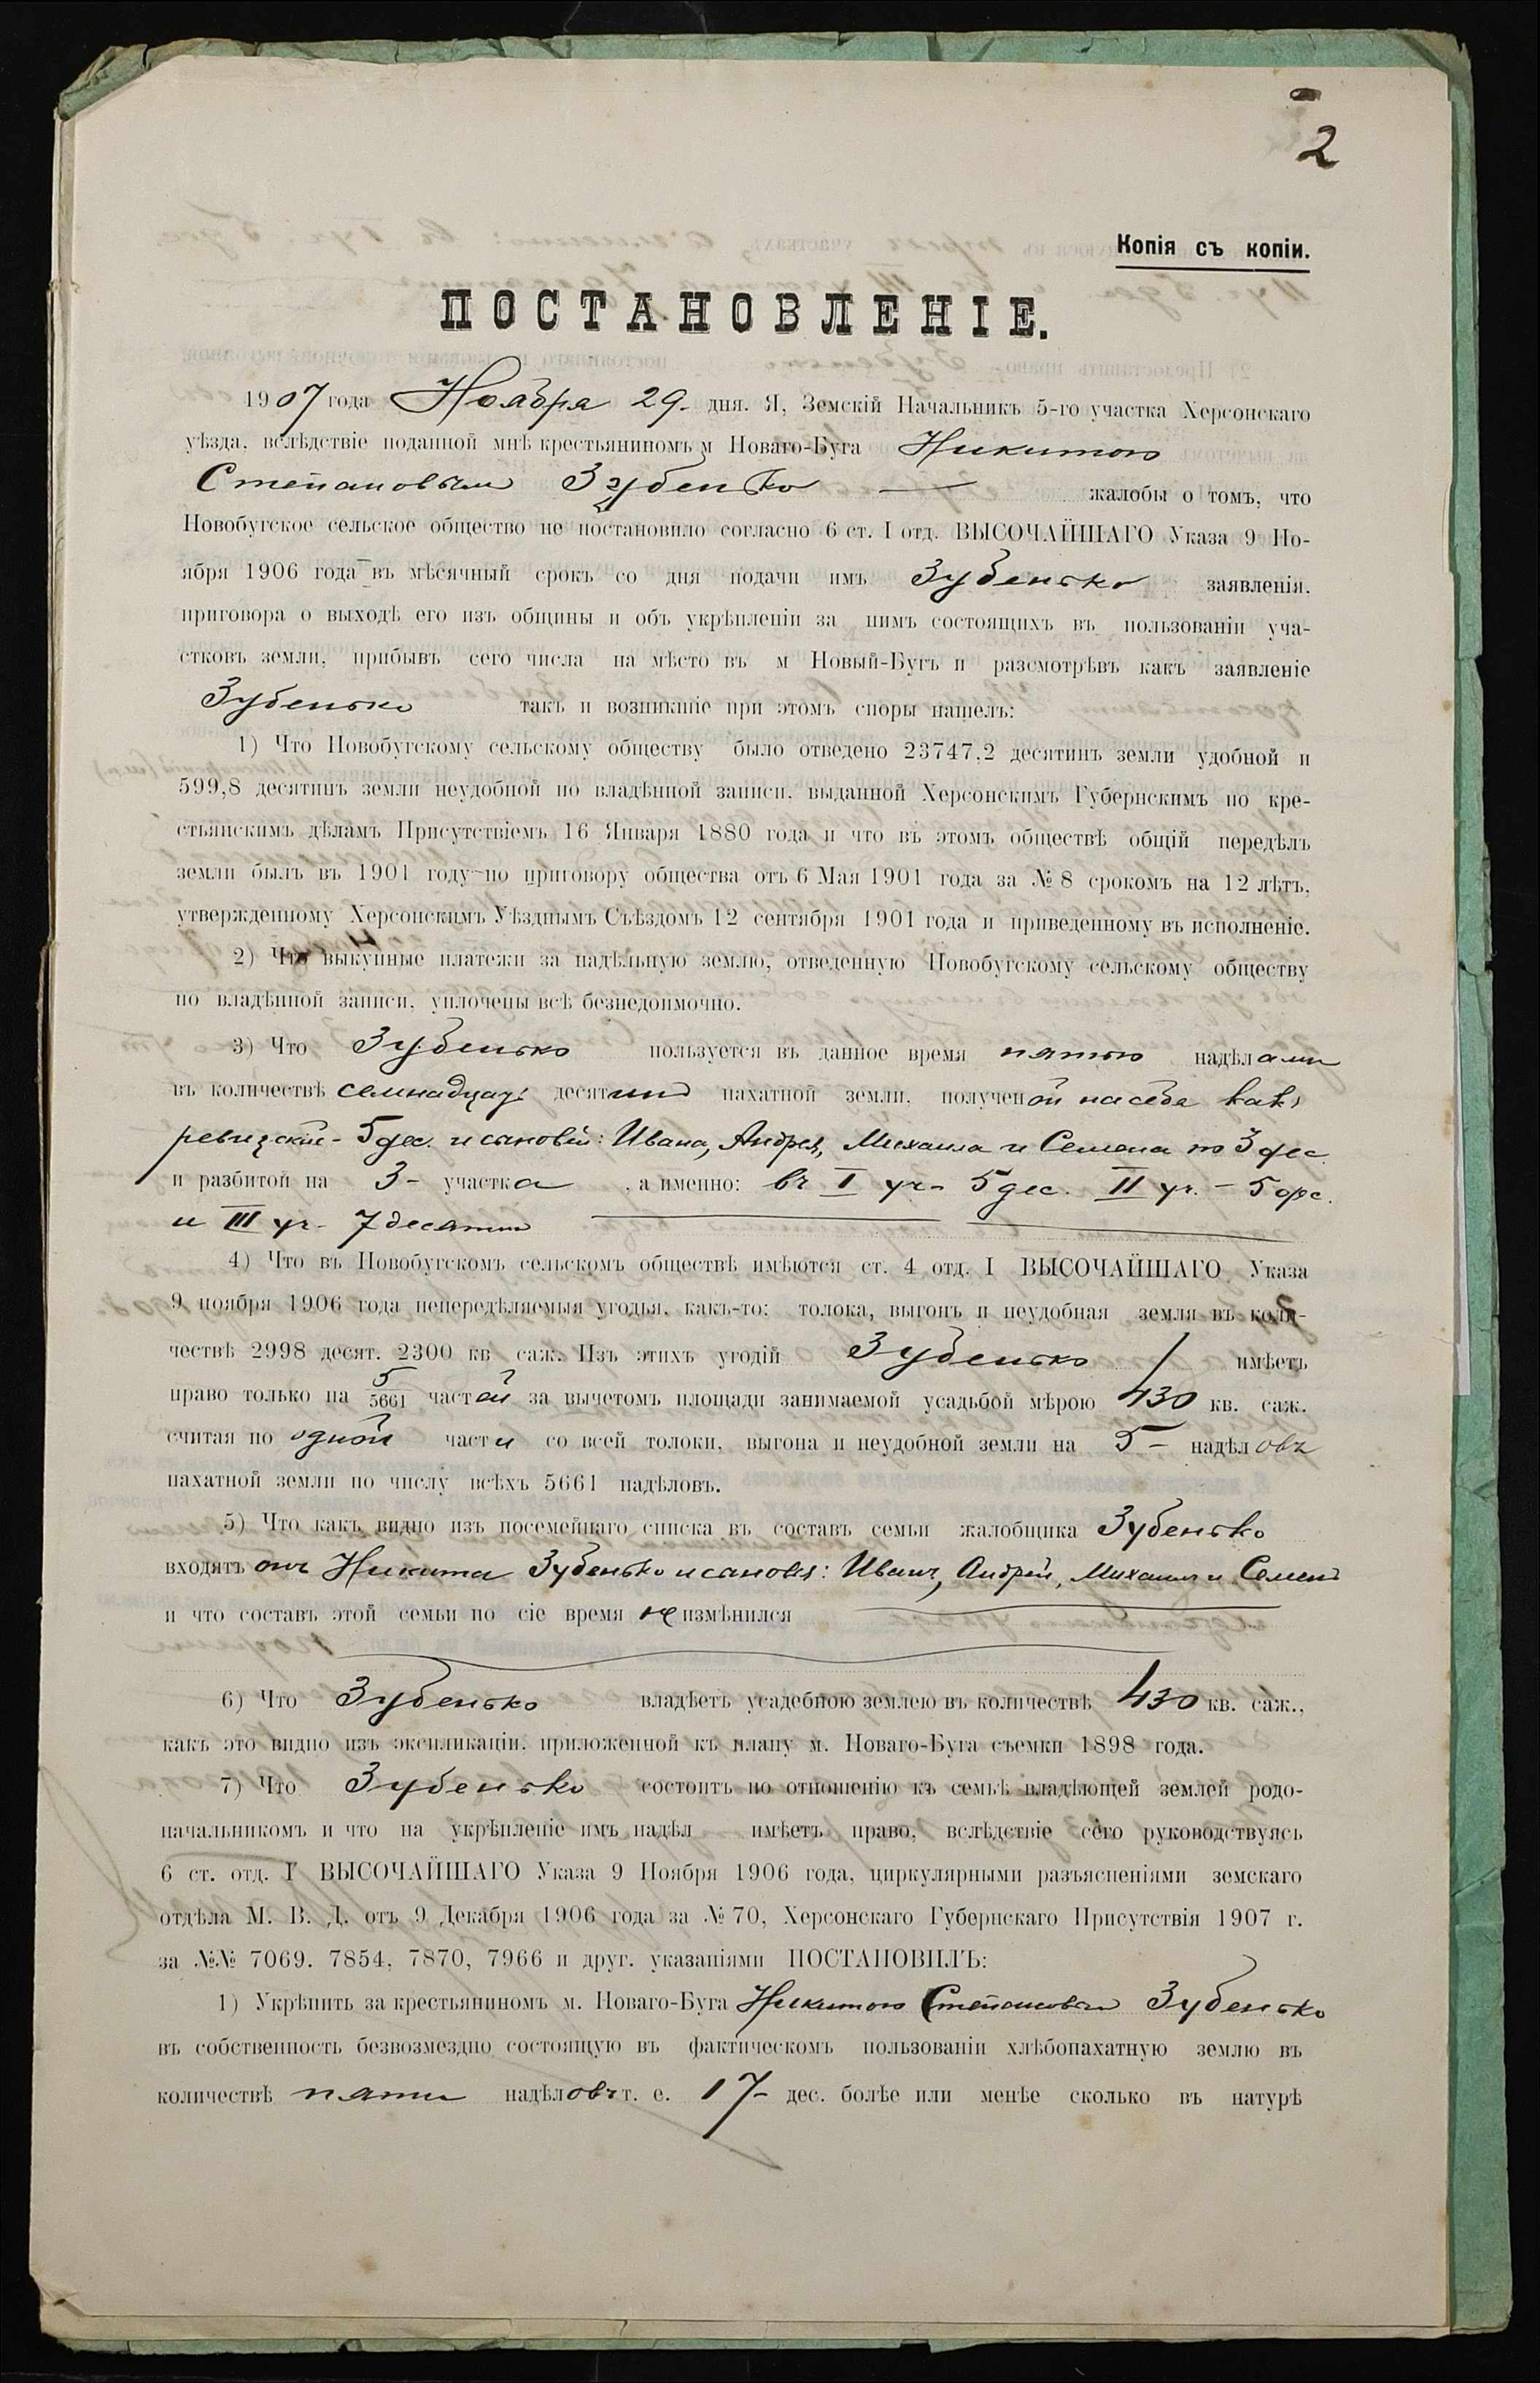 2
Копія съ копіи.
ПОСТАНОВЛЕНІЕ.
1907 года Ноября 29- дня. Я, Земскій Начальникъ 5-го участка Херсонскаго
уѣзда, вслѣдствіе поданной мнѣ крестьяниномъ м Новаго-Буга Никитою
Степановымъ Зубенько — жалобы о томъ, что
Новобугское сельское общество не постановило согласно 6 ст. I отд. ВЫСОЧАЙШАГО Указа 9 Но-
ября 1906 года въ мѣсячный срокъ со дня подачи имъ Зубенько заявленія.
приговора о выходѣ его изъ общины и объ укрѣпленіи за нимъ состоящихъ въ пользованіи уча-
стковъ земли, прибывъ сего числа на мѣсто въ м Новый-Бугъ и разсмотрѣвъ какъ заявленіе
Зубенько такъ и возникшіе при этомъ споры нашелъ:
1) Что Новобугскому сельскому обществу было отведено 23747,2 десятинъ земли удобной и
599,8 десятинъ земли неудобной по владѣнной записи, выданной Херсонскимъ Губернскимъ по кре-
стьянскимъ дѣламъ Присутствіемъ 16 Января 1880 года и что въ этомъ обществѣ общій передѣлъ
земли былъ въ 1901 году по приговору общества отъ 6 Мая 1901 года за № 8 срокомъ на 12 лѣтъ,
утвержденному Херсонскимъ Уѣзднымъ Съѣздомъ 12 сентября 1901 года и приведенному въ исполненіе.
2) Что выкупные платежи за надѣльную землю, отведенную Новобугскому сельскому обществу
по владѣнной записи, уплочены всѣ безнедоимочно.
3) Что Зубенько пользуется въ данное время пятью надѣлами
въ количествѣ семнадцать десятинъ пахатной земли, полученой на себя какъ
ревизскіе- 5 дес. и сыновей: Ивана, Андрея, Михаила и Семена по 3 дес.
и разбитой на 3- участка , а именно: въ I уч- 5 дес. II уч. - 5 дес.
и III уч- 7 десятин
4) Что въ Новобугскомъ сельскомъ обществѣ имѣются ст. 4 отд. I ВЫСОЧАЙШАГО Указа
9 ноября 1906 года непередѣляемыя угодья, какъ-то: толока, выгонъ и неудобная земля въ коли-
чествѣ 2998 десят. 2300 кв саж. Изъ этихъ угодій Зубенько имѣетъ
право только на 5/5661 частей за вычетомъ площади занимаемой усадьбой мѣрою 430 кв. саж.
считая по одной части со всей толоки, выгона и неудобной земли на 5 - надѣловъ
пахатной земли по числу всѣхъ 5661 надѣловъ.
5) Что какъ видно изъ посемейнаго списка въ составъ семьи жалобщика Зубенько
входятъ онъ Никита Зубенько и сыновья: Иванъ, Андрей, Михаилъ и Семенъ
и что составъ этой семьи по сіе время не измѣнился
6) Что Зубенько владѣетъ усадебною землею въ количествѣ 430 кв. саж.,
какъ это видно изъ экспликаціи, приложенной къ плану м. Новаго-Буга съемки 1898 года.
7) Что Зубенько состоитъ по отношенію къ семьѣ владѣющей землей родо-
начальникомъ и что на укрѣпленіе имъ надѣл имѣетъ право, вслѣдствіе сего руководствуясь
6 ст. отд. I ВЫСОЧАЙШАГО Указа 9 Ноября 1906 года, циркулярными разъясненіями земскаго
отдѣла М. В. Д. отъ 9 Декабря 1906 года за № 70, Херсонскаго Губернскаго Присутствія 1907 г.
за №№ 7069. 7854, 7870, 7966 и друг. указаніями ПОСТАНОВИЛЪ:
1) Укрѣпить за крестьяниномъ м. Новаго-Буга Никитою Степановымъ Зубенько
въ собственность безвозмездно состоящую въ фактическомъ пользованіи хлѣбопахатную землю въ
количествѣ пяти надѣловъ т. е. 17- дес. болѣе или менѣе сколько въ натурѣ